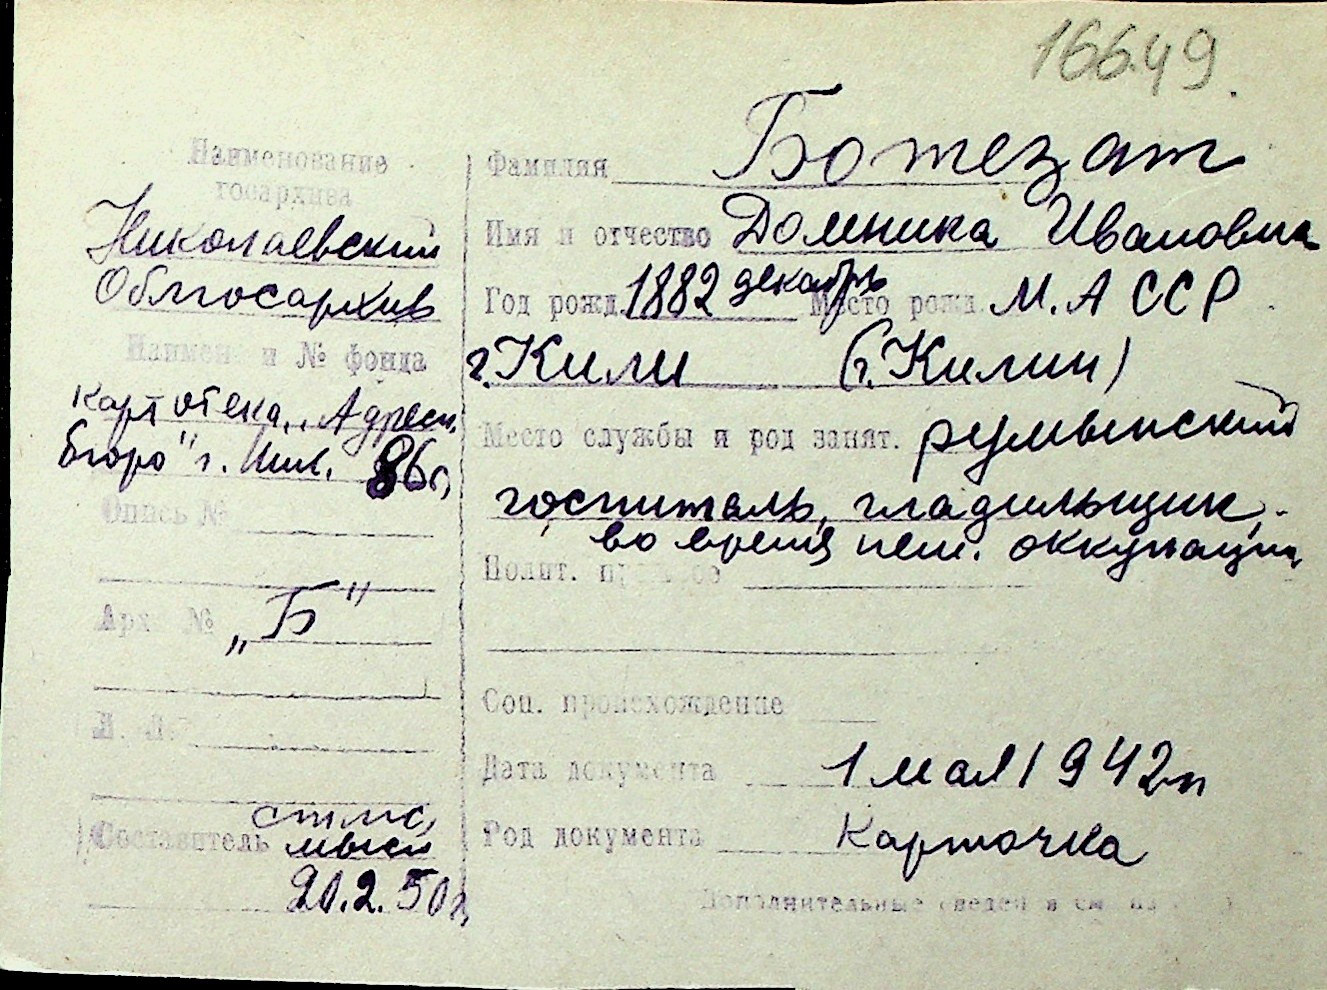 16649.
Наименование
госархива
Николаевский
Облгосархив
Наимен. и № фонда
картотека „Адресн.
бюро" г. Ник. 86г.
Опись №
Арх. № „Б"
Л. Л.
Составитель
20.2.50г.
Фамилия Ботезат
Имя и отчество Домника Ивановна
Год рожд. 1882 декабрь Место рожд. М.А ССР
г. Кили (г. Килии)
Место службы и род занят. румынский
госпиталь, гладильщик,
во время нем. оккупации
Полит. прошлое
Соц. происхождение
Дата документа 1 мая 1942г
Род документа Карточка
Дополнительные сведен. см. на